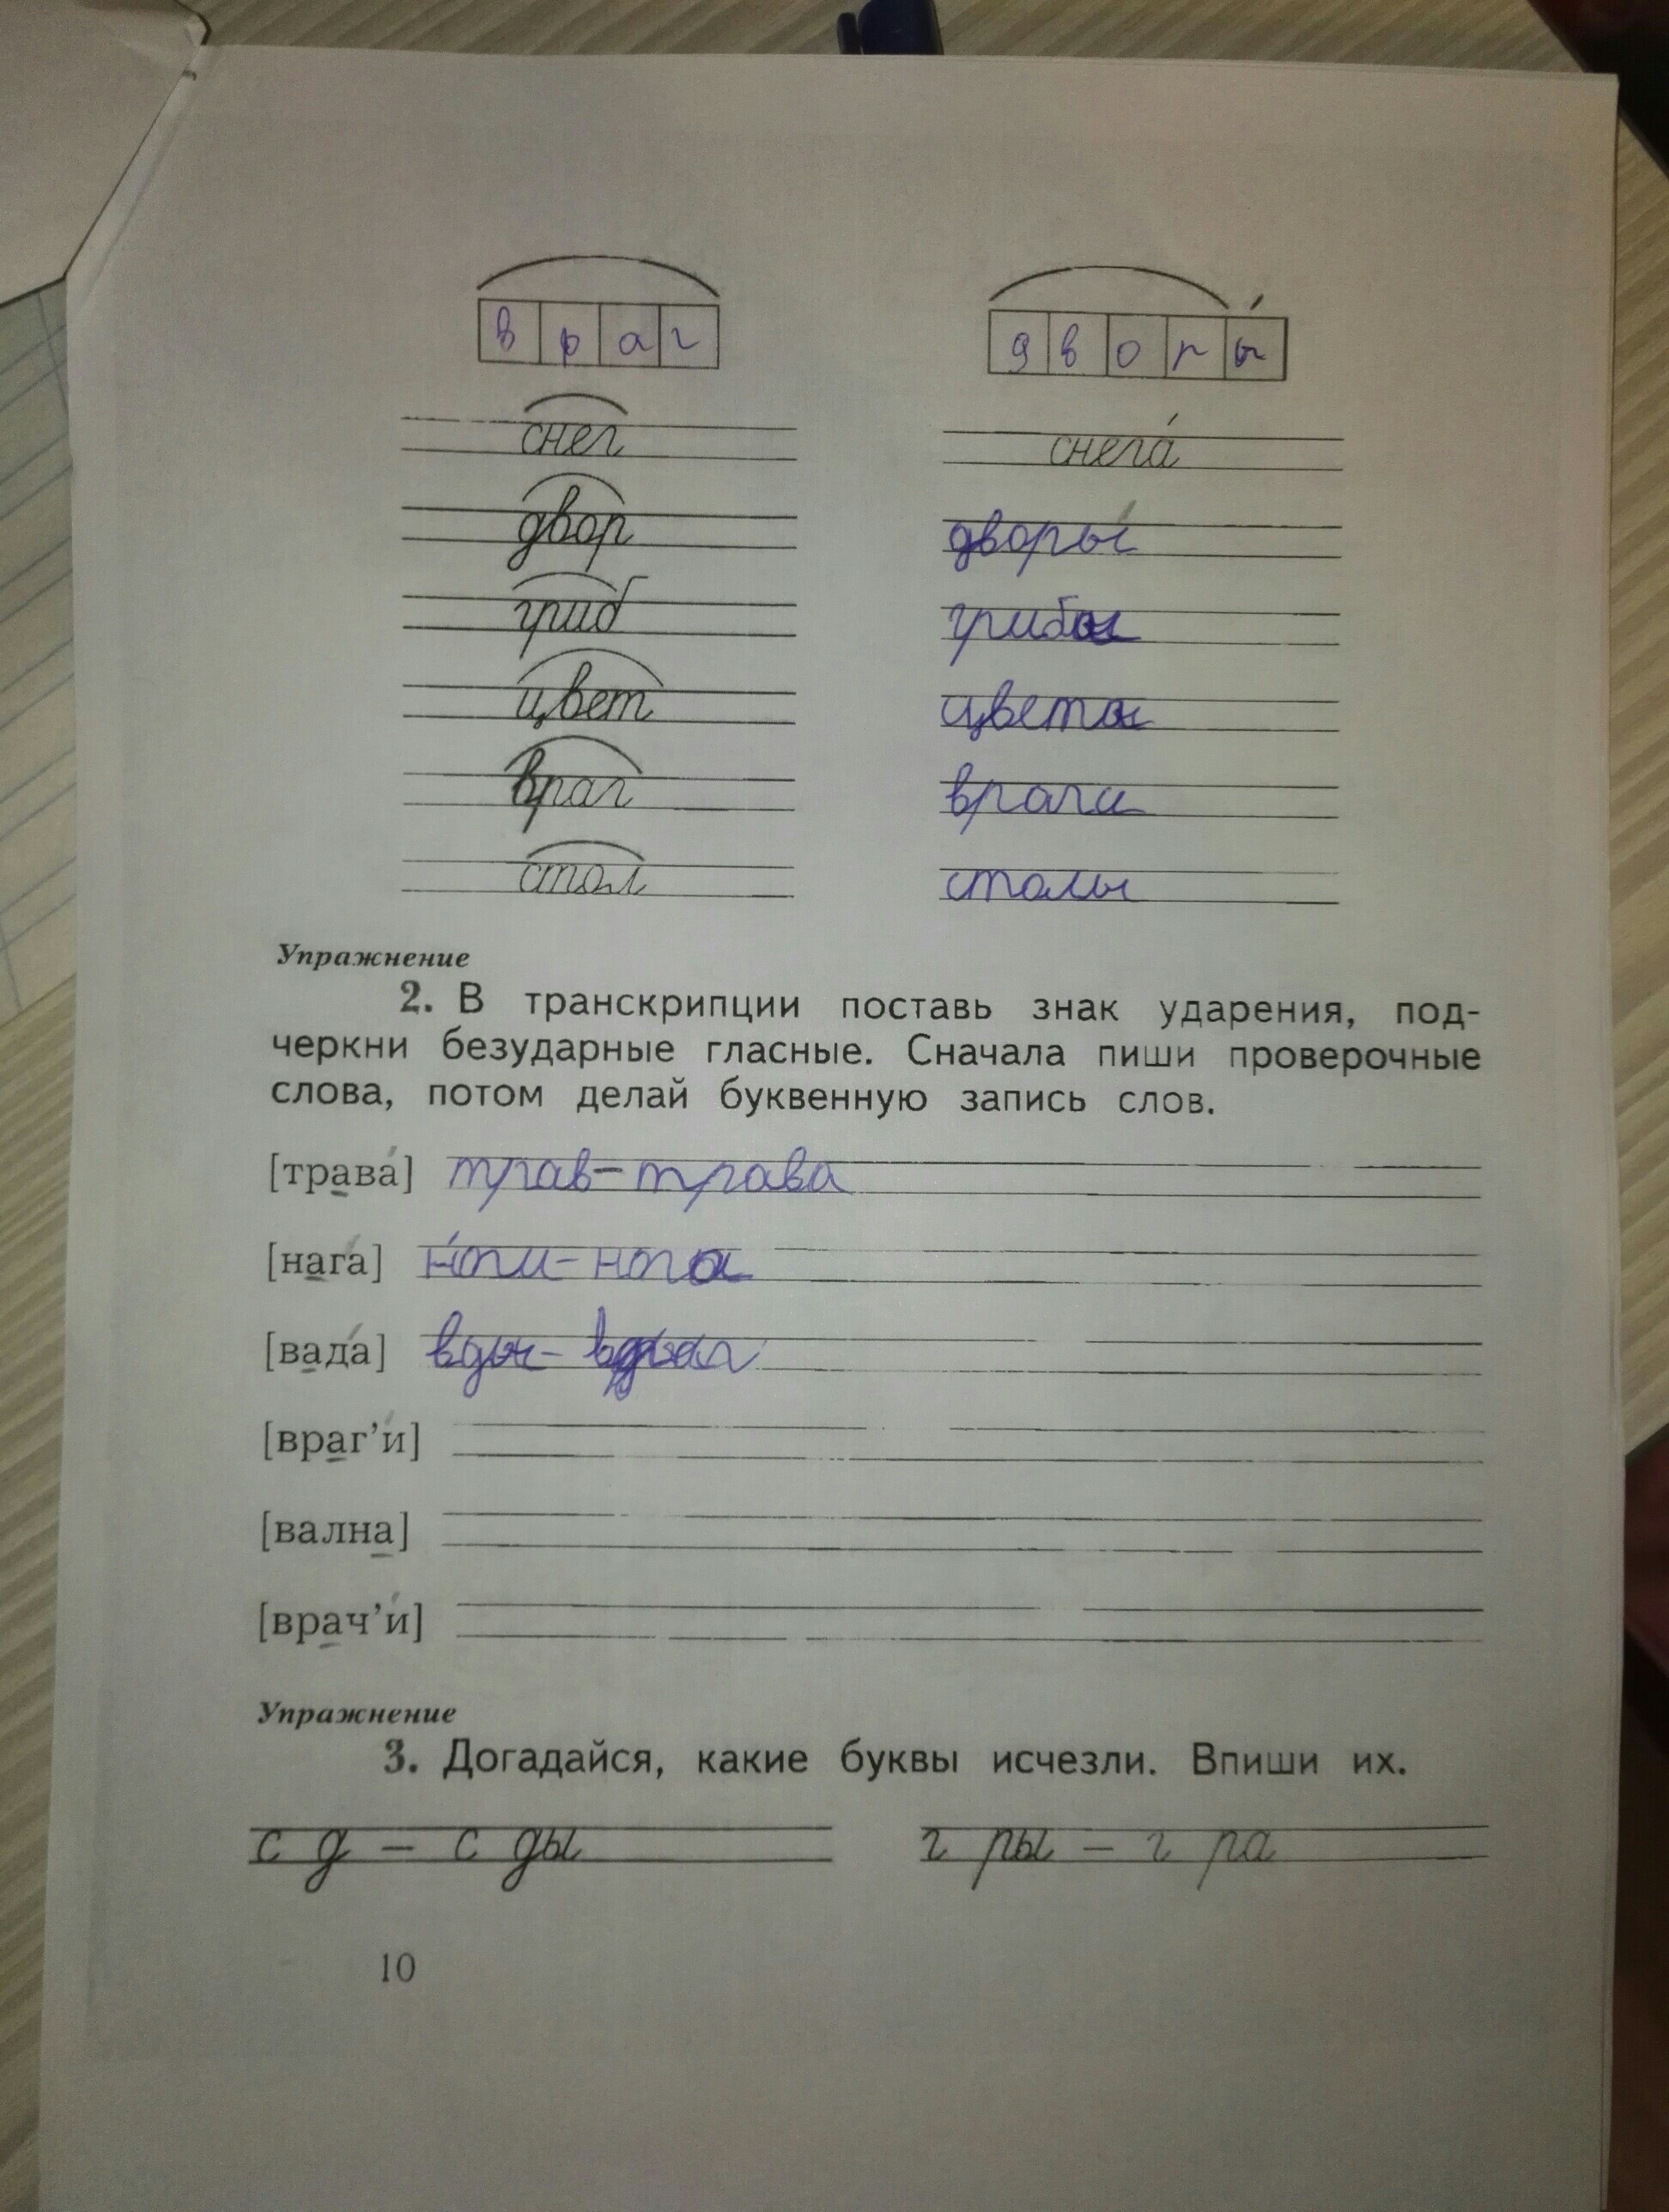 в р а г д в о р ы
снег снега́
двор дворы́
гриб грибы
цвет цветы
враг враги
стол столы
Упражнение
2. В транскрипции поставь знак ударения, под-
черкни безударные гласные. Сначала пиши проверочные
слова, потом делай буквенную запись слов.
[трава́] трав – трава
[нага́] но́ги – нога
[вада́] вды –
[враг’и́]
[вална]
[врач’и́]
Упражнение
3. Догадайся, какие буквы исчезли. Впиши их.
с д – с ды г ры – г ра
10